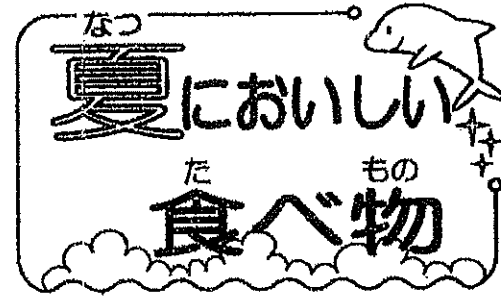 なつ
夏においしい
た もの
食べ物